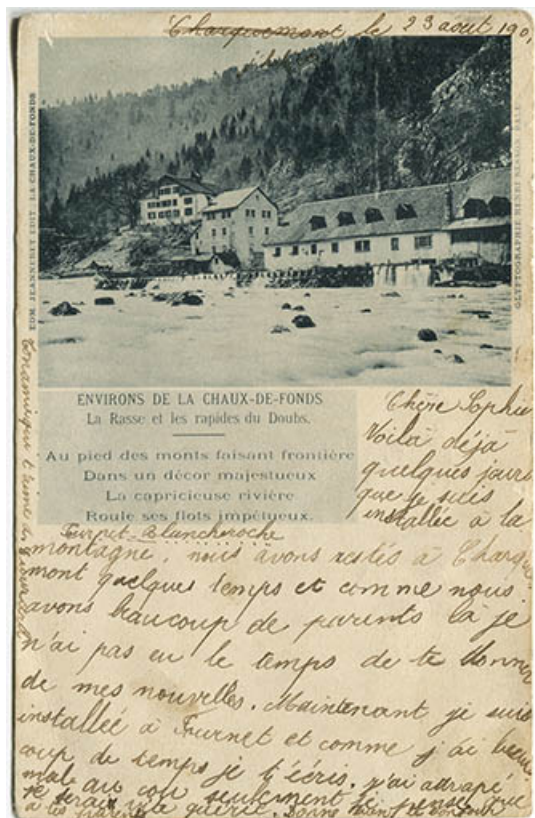 Charquemont le 23 août 190
EDM. JEANNERET EDIT. LA CHAUX-DE-FONDS
ENVIRONS DE LA CHAUX-DE-FONDS
La Rasse et les rapides du Doubs.
Au pied des monts faisant frontière
Dans un décor majestueux
La capricieuse rivière
Roule ses flots impétueux.
Chère Sophie
Voilà déjà
quelques jours
que je suis
installée à la
Furnet-Blancheroche
montagne, nous avons restés à Charque
mont quelque temps et comme nous
avons beaucoup de parents là je
n'ai pas eu le temps de te donner
de mes nouvelles. Maintenant je suis
installée à Fournet et comme j'ai beau
coup de temps je t'écris. j'ai attrapé
mal au cou seulement je pense que
ce sera guérie.
à tes parents